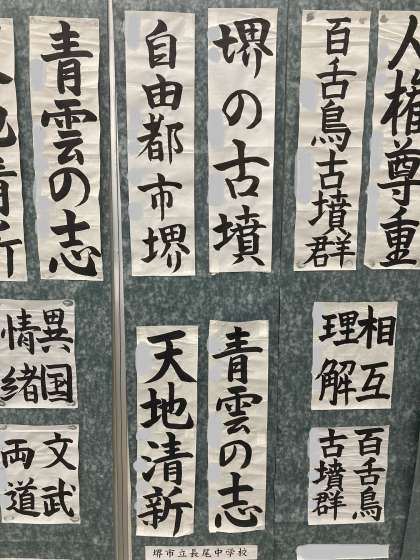 人権尊重
百舌鳥古墳群
堺の古墳
自由都市堺
青雲の志
天地清新
相互
理解
百舌鳥
古墳群
青雲の志
天地清新
異国
情緒
文武
両道
堺市立長尾中学校